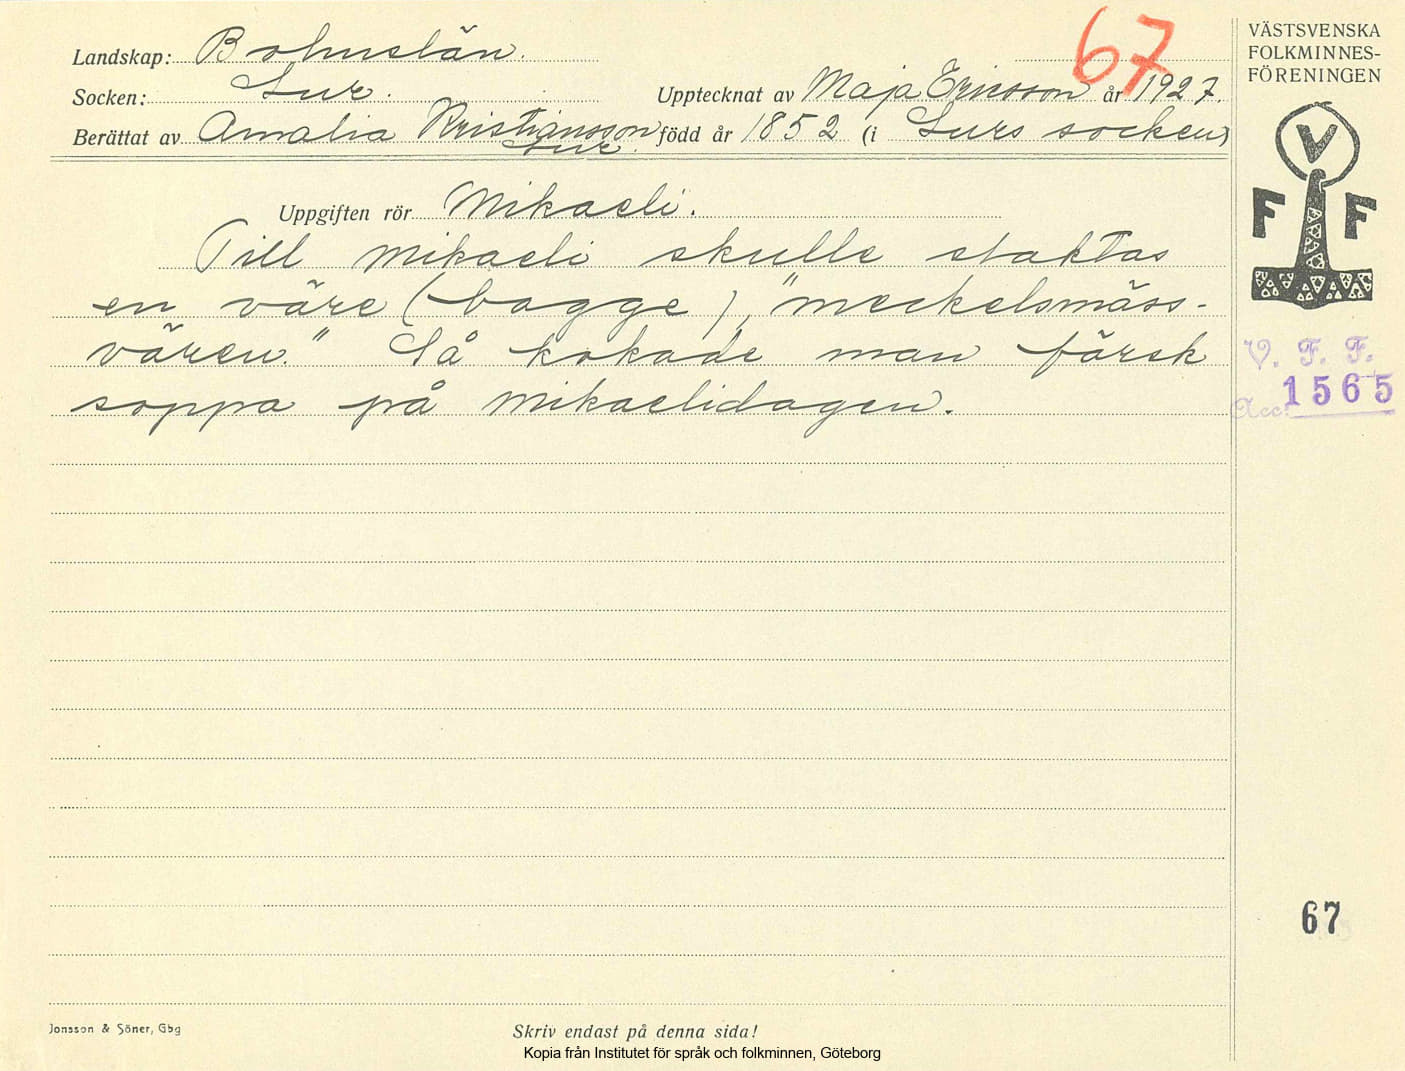 67
Landskap: Bohuslän.
Socken: Lur.
Upptecknat av Maja Ericsson år 1927.
Berättat av Amalia Kristiansson född år 1852 (i Lurs socken)
Lur.
Uppgiften rör Mikaeli.
Till mikaeli skulle slaktas
en väre (bagge), "meckelsmäss-
vären." Så kokade man färsk
soppa på mikaelidagen.
VÄSTSVENSKA
FOLKMINNES-
FÖRENINGEN
V
F F
V. F. F.
Acc: 1565
67
Jonsson & Söner, Gbg
Skriv endast på denna sida!
Kopia från Institutet för språk och folkminnen, Göteborg